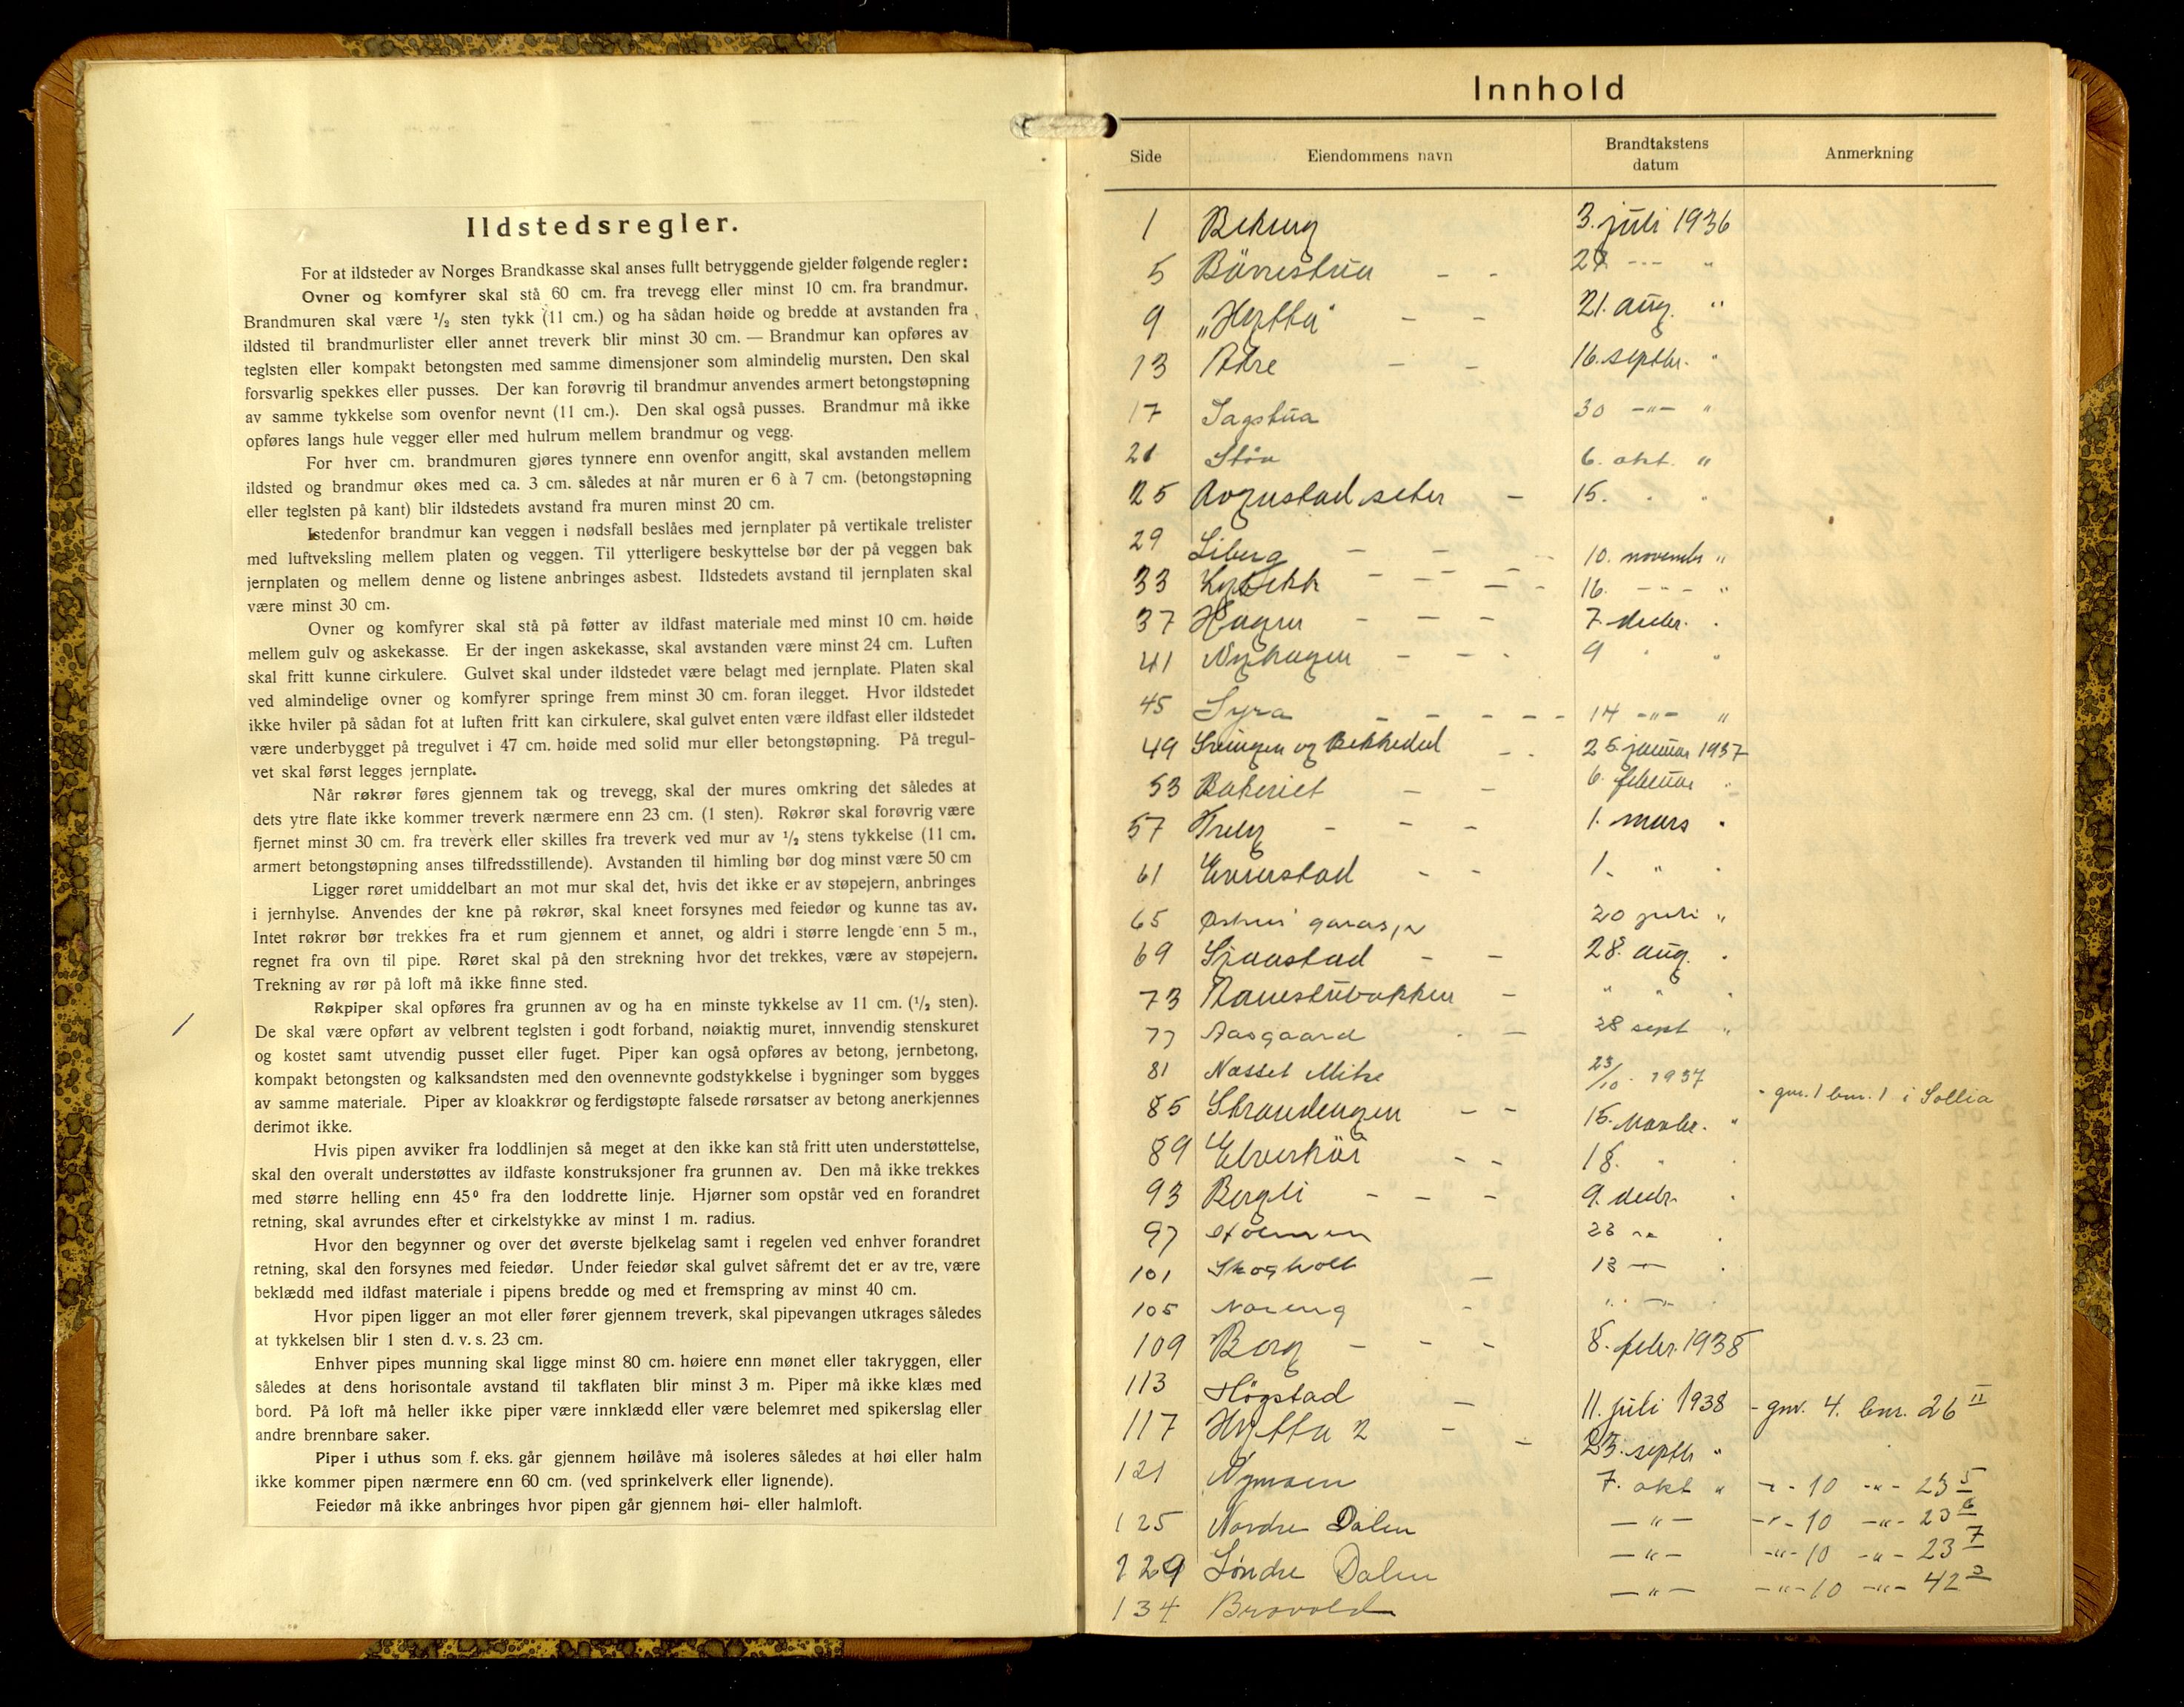 Ildstedsregler.
For at ildsteder av Norges Brandkasse skal anses fullt betryggende gjelder følgende regler:
Ovner og komfyrer skal stå 60 cm. fra trevegg eller minst 10 cm. fra brandmur.
Brandmuren skal være ½ sten tykk (11 cm.) og ha sådan høide og bredde at avstanden fra
ildsted til brandmurlister eller annet treverk blir minst 30 cm. — Brandmur kan opføres av
teglsten eller kompakt betongsten med samme dimensjoner som almindelig mursten. Den skal
forsvarlig spekkes eller pusses. Der kan forøvrig til brandmur anvendes armert betongstøpning
av samme tykkelse som ovenfor nevnt (11 cm.). Den skal også pusses. Brandmur må ikke
opføres langs hule vegger eller med hulrum mellem brandmur og vegg.
For hver cm. brandmuren gjøres tynnere enn ovenfor angitt, skal avstanden mellem
ildsted og brandmur økes med ca. 3 cm. således at når muren er 6 à 7 cm. (betongstøpning
eller teglsten på kant) blir ildstedets avstand fra muren minst 20 cm.
Istedenfor brandmur kan veggen i nødsfall beslåes med jernplater på vertikale trelister
med luftveksling mellem platen og veggen. Til ytterligere beskyttelse bør der på veggen bak
jernplaten og mellem denne og listene anbringes asbest. Ildstedets avstand til jernplaten skal
være minst 30 cm.
Ovner og komfyrer skal stå på føtter av ildfast materiale med minst 10 cm. høide
mellem gulv og askekasse. Er der ingen askekasse, skal avstanden være minst 24 cm. Luften
skal fritt kunne cirkulere. Gulvet skal under ildstedet være belagt med jernplate. Platen skal
ved almindelige ovner og komfyrer springe frem minst 30 cm. foran ilegget. Hvor ildstedet
ikke hviler på sådan fot at luften fritt kan cirkulere, skal gulvet enten være ildfast eller ildstedet
være underbygget på tregulvet i 47 cm. høide med solid mur eller betongstøpning. På tregul-
vet skal først legges jernplate.
Når røkrør føres gjennem tak og trevegg, skal der mures omkring det således at
dets ytre flate ikke kommer treverk nærmere enn 23 cm. (1 sten). Røkrør skal forøvrig være
fjernet minst 30 cm. fra treverk eller skilles fra treverk ved mur av ½ stens tykkelse (11 cm.
armert betongstøpning anses tilfredsstillende). Avstanden til himling bør dog minst være 50 cm
Ligger røret umiddelbart an mot mur skal det, hvis det ikke er av støpejern, anbringes
i jernhylse. Anvendes der kne på røkrør, skal kneet forsynes med feiedør og kunne tas av.
Intet røkrør bør trekkes fra et rum gjennem et annet, og aldri i større lengde enn 5 m.,
regnet fra ovn til pipe. Røret skal på den strekning hvor det trekkes, være av støpejern.
Trekning av rør på loft må ikke finne sted.
Røkpiper skal opføres fra grunnen av og ha en minste tykkelse av 11 cm. (½ sten).
De skal være opført av velbrent teglsten i godt forband, nøiaktig muret, innvendig stenskuret
og kostet samt utvendig pusset eller fuget. Piper kan også opføres av betong, jernbetong,
kompakt betongsten og kalksandsten med den ovennevnte godstykkelse i bygninger som bygges
av samme materiale. Piper av kloakkrør og ferdigstøpte falsede rørsatser av betong anerkjennes
derimot ikke.
Hvis pipen avviker fra loddlinjen så meget at den ikke kan stå fritt uten understøttelse,
skal den overalt understøttes av ildfaste konstruksjoner fra grunnen av. Den må ikke trekkes
med større helling enn 45° fra den loddrette linje. Hjørner som opstår ved en forandret
retning, skal avrundes efter et cirkelstykke av minst 1 m. radius.
Hvor den begynner og over det øverste bjelkelag samt i regelen ved enhver forandret
retning, skal den forsynes med feiedør. Under feiedør skal gulvet såfremt det er av tre, være
beklædd med ildfast materiale i pipens bredde og med et fremspring av minst 40 cm.
Hvor pipen ligger an mot eller fører gjennem treverk, skal pipevangen utkrages således
at tykkelsen blir 1 sten d. v. s. 23 cm.
Enhver pipes munning skal ligge minst 80 cm. høiere enn mønet eller takryggen, eller
således at dens horisontale avstand til takflaten blir minst 3 m. Piper må ikke klæs med
bord. På loft må heller ikke piper være innklædd eller være belemret med spikerslag eller
andre brennbare saker.
Piper i uthus som f. eks. går gjennem høilåve må isoleres således at høi eller halm
ikke kommer pipen nærmere enn 60 cm. (ved sprinkelverk eller lignende).
Feiedør må ikke anbringes hvor pipen går gjennem høi- eller halmloft.
Innhold
Side Eiendommens navn Brandtakstens datum Anmerkning
1 3. juli 1936
5 Bürrestua - - 27 --- "
9 „Hytta" - - 21. aug. "
13 Åkre - - 16. septbr. "
17 Sagstua 30 -"- "
21 Støa 6. okt. "
25 Avgustad seter - 15. " "
29 Liberg - - - 10. novembr "
33 Kybekk - - - 16. --- "
37 Haugen - - - 7. decbr. "
41 Nyhagen - - - 9 " "
45 Syra - - - - - 14 -"- "
49 Svingen og Bekkedal - - 25. januar 1937
53 Bakeriet - - 6. februar "
57 Treby - - - 1. mars "
61 Evenstad - - 1. " "
65 garasje 20 juli "
69 Sjaastad - - 28. aug. "
73 Nauestubakken - " " "
77 Aasgaard - - 28 sept "
81 Næsset Mitre 23/10. 1937
- gnr. 1 bnr. 1 i Sollia
85 Strandengen - - 15. Novbr. "
89 Elverhøi - - 18. " "
93 Bergli - - - 9. decbr. "
97 Holmen 23 -"- "
101 Skogholt - 13 -"- "
105 Noreng - " -"- "
109 Borg - - - 8. febr. 1938
113 Høgstad - 11. juli 1938 - gnr. 4. bnr. 26 II
117 Hytta 2 - - 23. septbr "
121 Nymoen 7. okt " -"- 10 -"- 23 5
125 Nordre Dalen -"- -"- 10 -"- 23 6
129 Søndre Dalen -"- -"- 10 -"- 23 7
134 Brovold -"- -"- 10 -"- 42 3